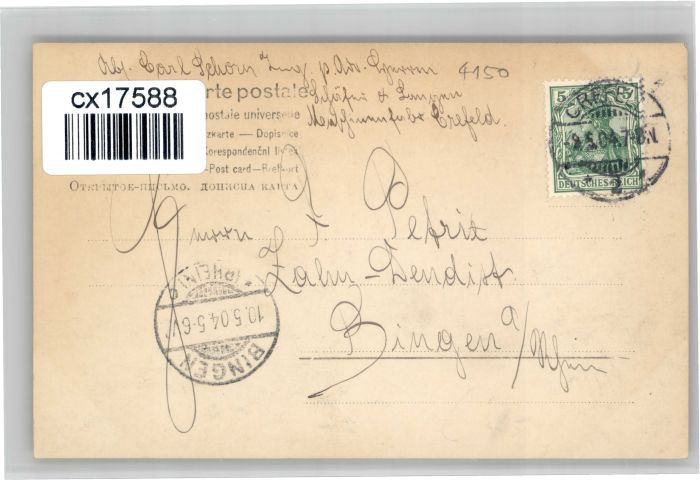 Abs. Carl Schorn Ing. p. Adr. Herren 4150
Schäfer & Langen
Maschinenfabr. Crefeld.
cx17588
rte postale
postale universelle
zkarte — Dopisnice
Korespondenční lístek
-Post card—Brefkort
Открытое-письмо. дописна карта
Herrn F Petrix
Zahn-Dendist.
Bingen a/Rhein
5
DEUTSCHES REICH
CREFELD
9.5.04.7-8.V
* 2
BINGEN
10.5.04.5-6.V
* (RHEIN) c